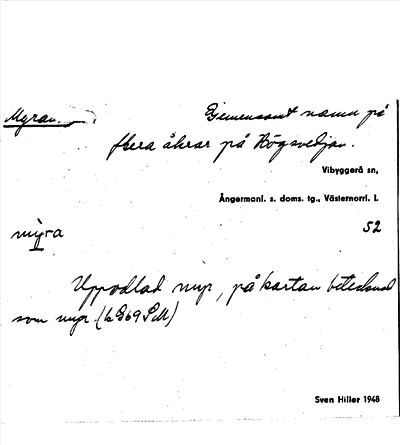 Myran. Gemensamt namn på
flera åkrar på Högsvedjan.
Vibyggerå sn,
Ångermanl. s. doms. tg., Västernorrl. l.
myra 52
Uppodlad myr, på kartan betecknad
som myr. (L G69 SM)
Sven Hiller 1948